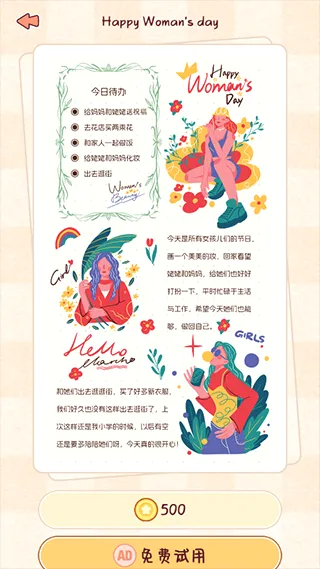 Happy Woman's day
今日待办
给妈妈和姥姥送祝福
去花店买两束花
和家人一起做饭
给姥姥和妈妈化妆
出去逛街
Woman's
Beauty
Happy
Woman's
Day
Girl
今天是所有女孩儿们的节日，
画一个美美的妆，回家看望
姥姥和妈妈，给她们也好好
打扮一下，平时忙碌于生活
与工作，希望今天她们也能
够，做回自己。
Hello
March
GIRLS
和她们出去逛逛街，买了好多新衣服，
我们好久也没有这样出去逛街了，上
次这样还是我小学的时候，以后有空
还是要多陪陪她们呀，今天真的很开心！
500
AD 免费试用